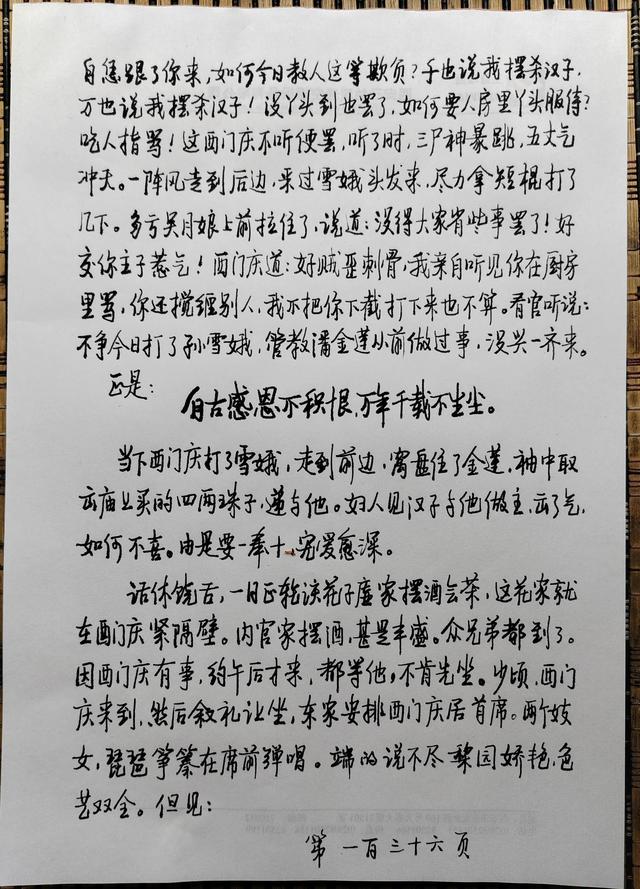 自恁跟了你来，如何今日教人这等欺负？千也说我摆杀汉子，
万也说我摆杀汉子！没丫头到也罢了，如何要人房里丫头服侍？
吃人指骂！这西门庆不听便罢，听了时，三尸神暴跳，五丈气
冲天。一阵风走到后边，采过雪娥头发来，尽力拿短棍打了
几下。多亏吴月娘上前拉住了，说道：没得大家省些事罢了！好
交你主子惹气！西门庆道：好贼歪刺骨，我亲自听见你在厨房
里骂，你还搅缠别人，我不把你下截打下来也不算。看官听说：
不争今日打了孙雪娥，管教潘金莲从前做过事，没兴一齐来。
正是：
自古感恩不积恨，万年千载不生尘。
当下西门庆打了雪娥，走到前边，窝盘住了金莲，袖中取
庙上买的四两珠子，递与他。妇人见汉子与他做主，出了气，
如何不喜。由是要一奉十，宠爱愈深。
话休饶舌，一日正轮该花子虚家摆酒会茶，这花家就
在西门庆紧隔壁。内官家摆酒，甚是丰盛。众兄弟都到了。
因西门庆有事，约午后才来，都等他，不肯先坐。少顷，西门
庆来到，然后叙礼让坐，东家安排西门庆居首席。两个妓
女，琵琶筝纂在席前弹唱。端的说不尽梨园娇艳，色
艺双全。但见：
第一百三十六页